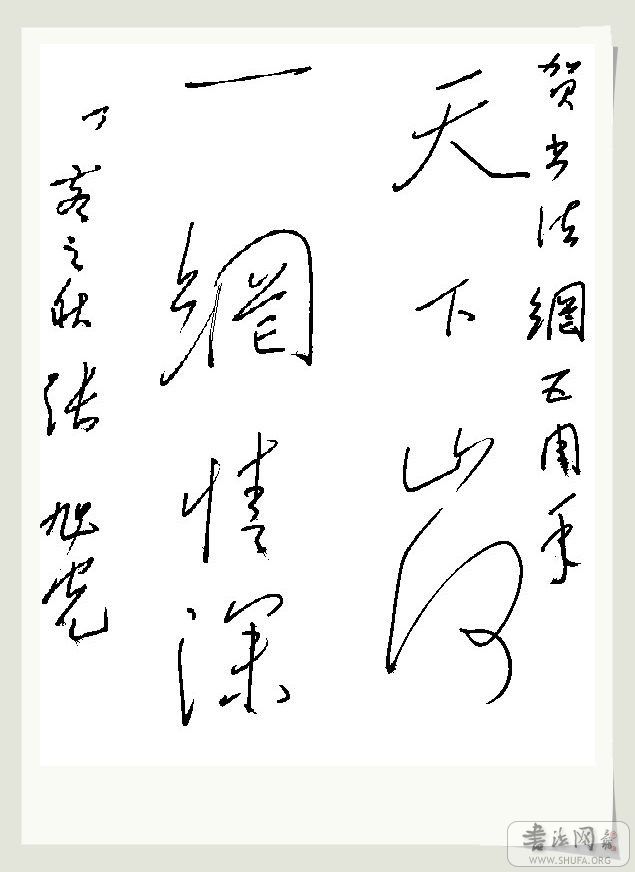 贺书法網五周年
天下山河
一網情深
丁亥之秋 张旭光
書法网
WWW.SHUFA.ORG